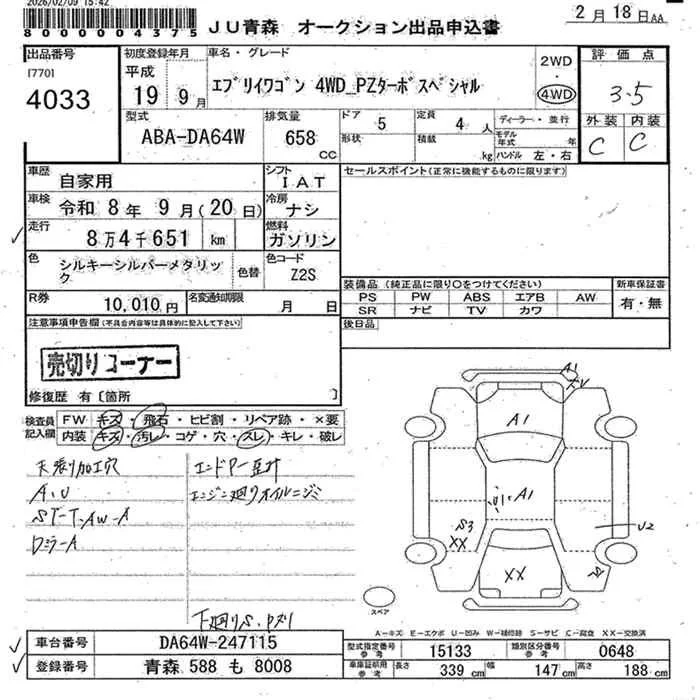 2026/02/09 15:42
8000004375
JU青森 オークション出品申込書
2月18日AA
出品番号
[770]
4033
初度登録年月
平成
19 9月
車名・グレード
エブリイワゴン 4WD_PZターボスペシャル
2WD
・
4WD
評価点
3.5
外装 内装
C C
型式
ABA-DA64W
排気量
658
CC
ドア 5
形状
定員 4人
積載 kg
ディーラー・並行
モデル年式 年
ハンドル 左・右
車歴
自家用
シフト
IAT
セールスポイント(正常に機能するものに限ります)
車検
令和 8年 9月(20日)
冷房
ナシ
走行
8万4千651 km
燃料
ガソリン
色
シルキーシルバーメタリック
色替
色コード
Z2S
装備品(純正品に限り○をつけてください)
PS PW ABS エアB AW
SR ナビ TV カワ
新車保証書
有・無
R券
10,010円
名変通知期限
月 日
後日品
注意事項申告欄(不具合内容等は具体的に記入して下さい)
売切りコーナー
修復歴 有〔箇所 〕
検査員記入欄
FW キズ・飛石・ヒビ割・リペア跡・×要
内装 キズ・汚レ・コゲ・穴・スレ・キレ・破レ
天張り加工穴
A.U
ST-T.AW-A
Dミラー A
エンジン廻りオイルニジミ
下廻りS.Pズリ
A1
A1
A1
S3
XX
XX
U2
スペア
A-キズ E-エクボ U-凹み W-補修跡 S-サビ C-腐食 XX-交換済
車台番号
DA64W-247115
登録番号
青森 588 も 8008
型式指定番号
参考
15133
類別区分番号
参考
0648
車庫証明用
参考
長さ
339 cm
幅
147 cm
高さ
188 cm